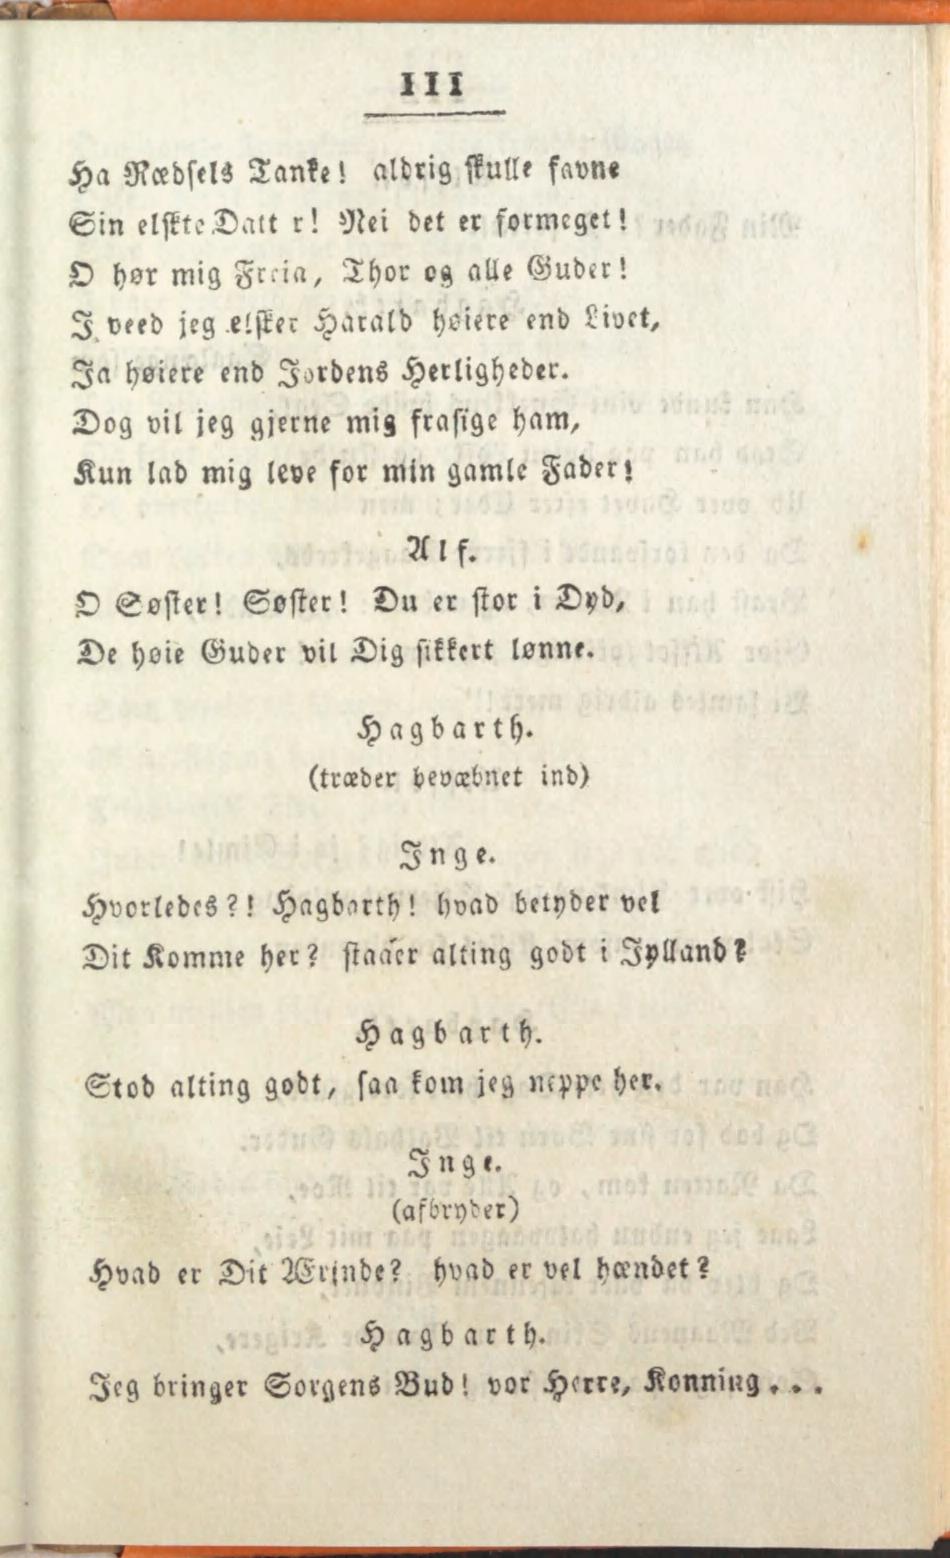 III
Ha Rædsels Tanke! aldrig skulle favne
Sin elskte Datt r! Nei det er formeget!
O hør mig Freia, Thor og alle Guder!
I veed jeg elsker Harald høiere end Livet,
Ja høiere end Jordens Herligheder.
Dog vil jeg gjerne mig frasige ham,
Kun lad mig leve for min gamle Fader!
Alf.
O Søster! Søster! Du er stor i Dyd,
De høie Guder vil Dig sikkert lønne.
Hagbarth.
(træder bevæbnet ind)
Inge.
Hvorledes?! Hagbarth! hvad betyder vel
Dit Komme her? staaer alting godt i Jylland?
Hagbarth.
Stod alting godt, saa kom jeg neppe her.
Inge.
(afbryder)
Hvad er Dit Ærinde? hvad er vel hændet?
Hagbarth.
Jeg bringer Sorgens Bud! vor Herre, Konning...